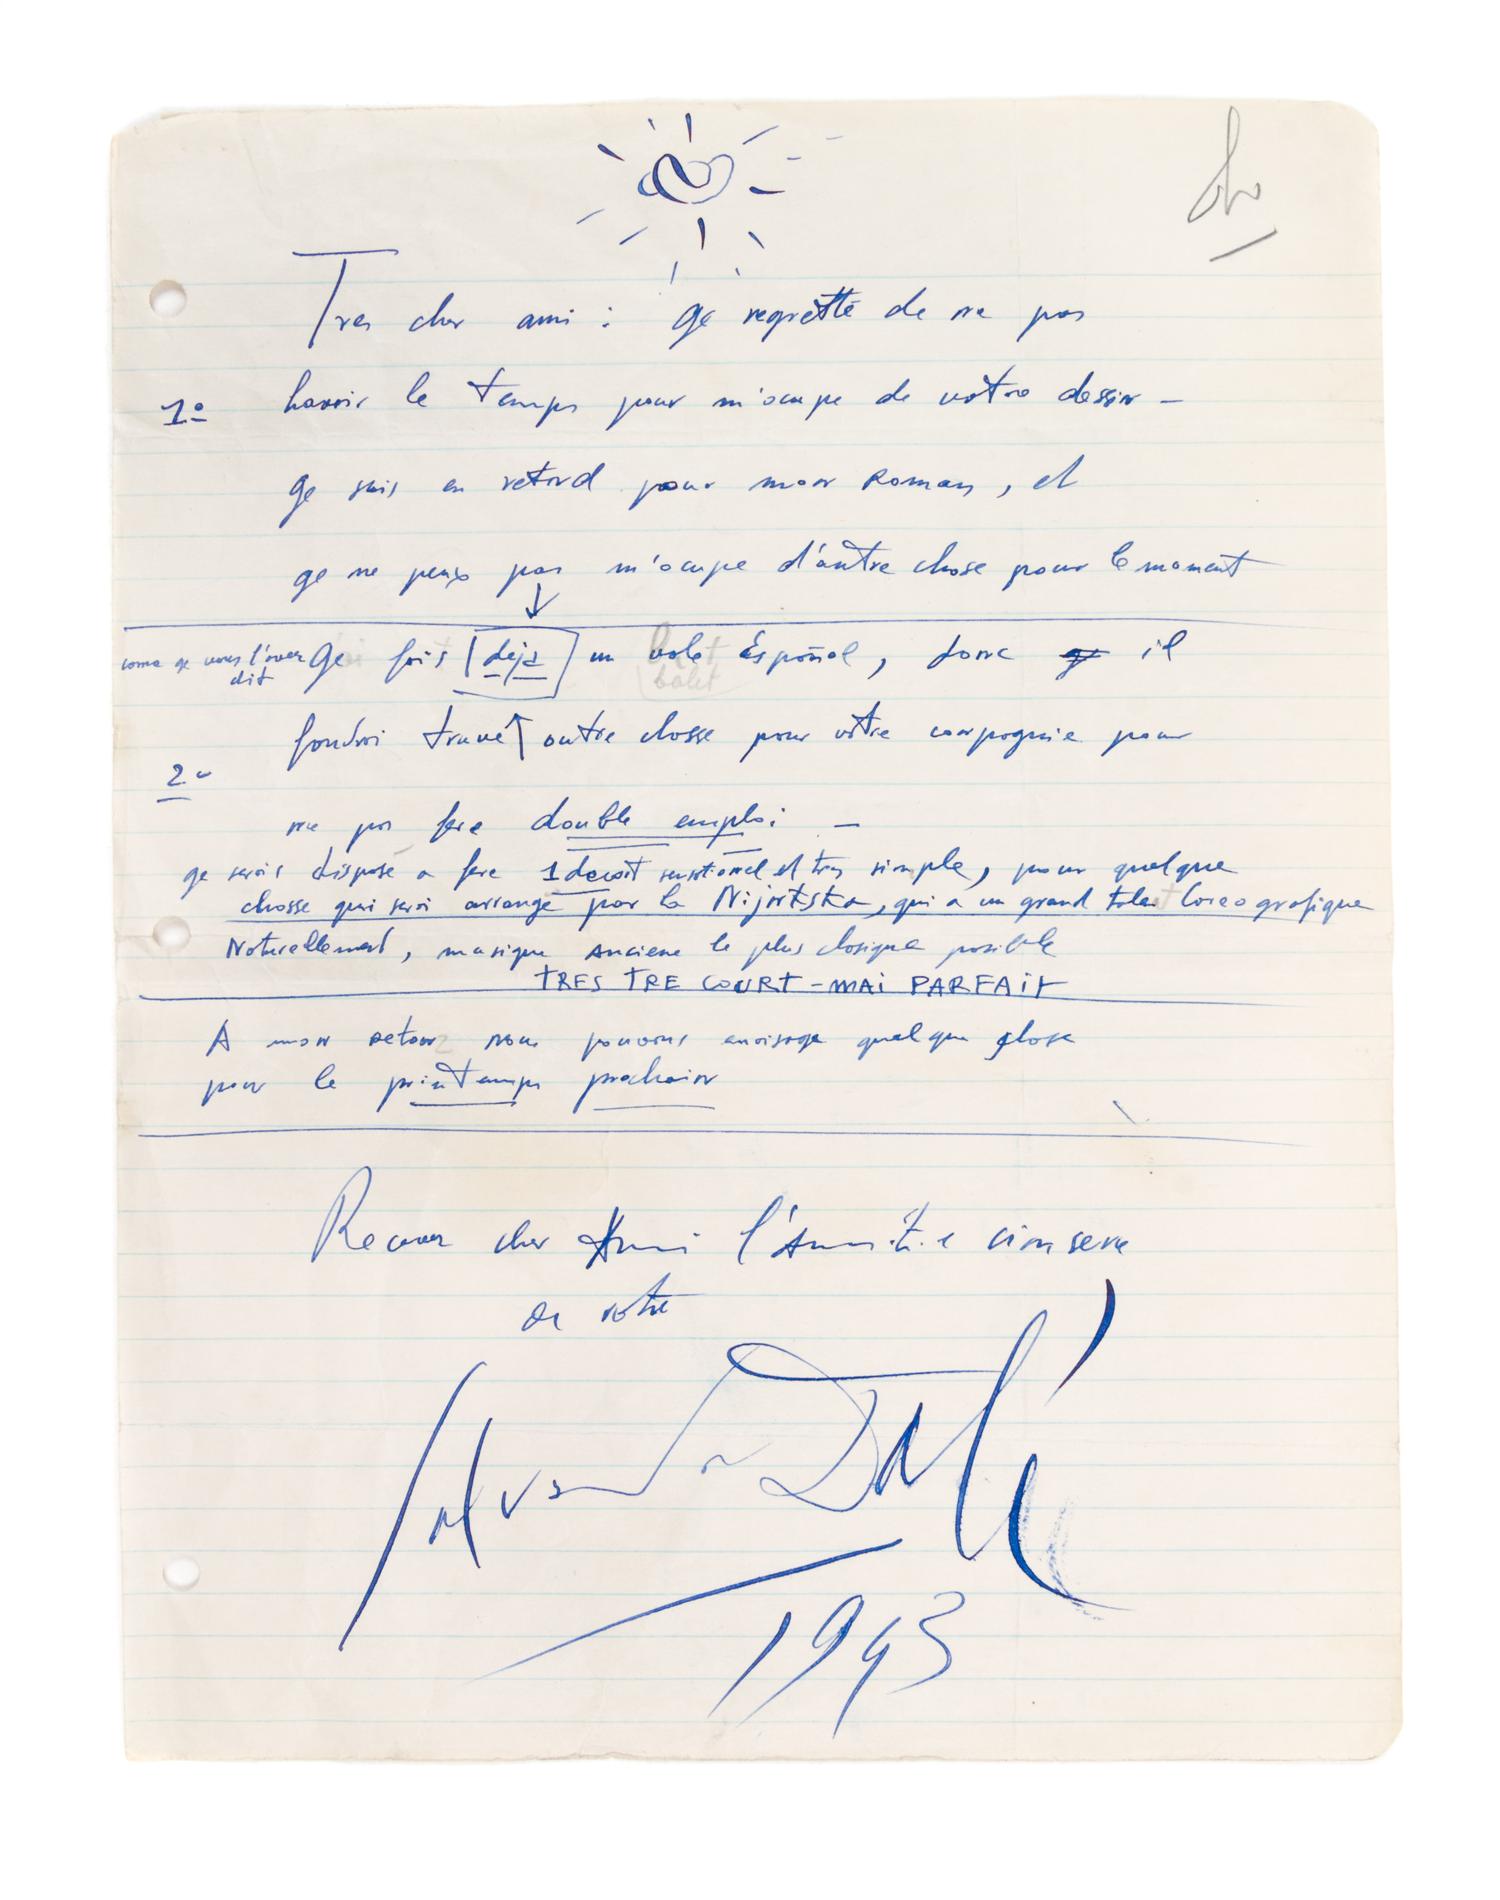 Tres cher ami : ge regrette de ne pas
1º havoir le temps pour m'ocupe de votre dessin —
ge suis en retard pour mon Roman, et
ge ne peux pas m'ocupe d'autre chose pour le moment
come ge vous l'aver dit
Ge fais déjà un vale Español, donc ge il
balet
foudrai truve autre chosse pour votre compagnie pour
2º
ne pas fere double emploi —
ge serais disposé a fere 1 decort sensationel et tres simple, pour quelque
chosse qui serai arrange par la Nijintska, qui a un grand talent Coreografique
Naturellement, musique anciene le plus classique posible
TRES TRE COURT - MAI PARFAIT
A mon retour nous pouvons envisage quelque chose
pour le printemps prochain
Recever cher Ami l'Amitie cinsere
de votre
Salvador Dalí
1943